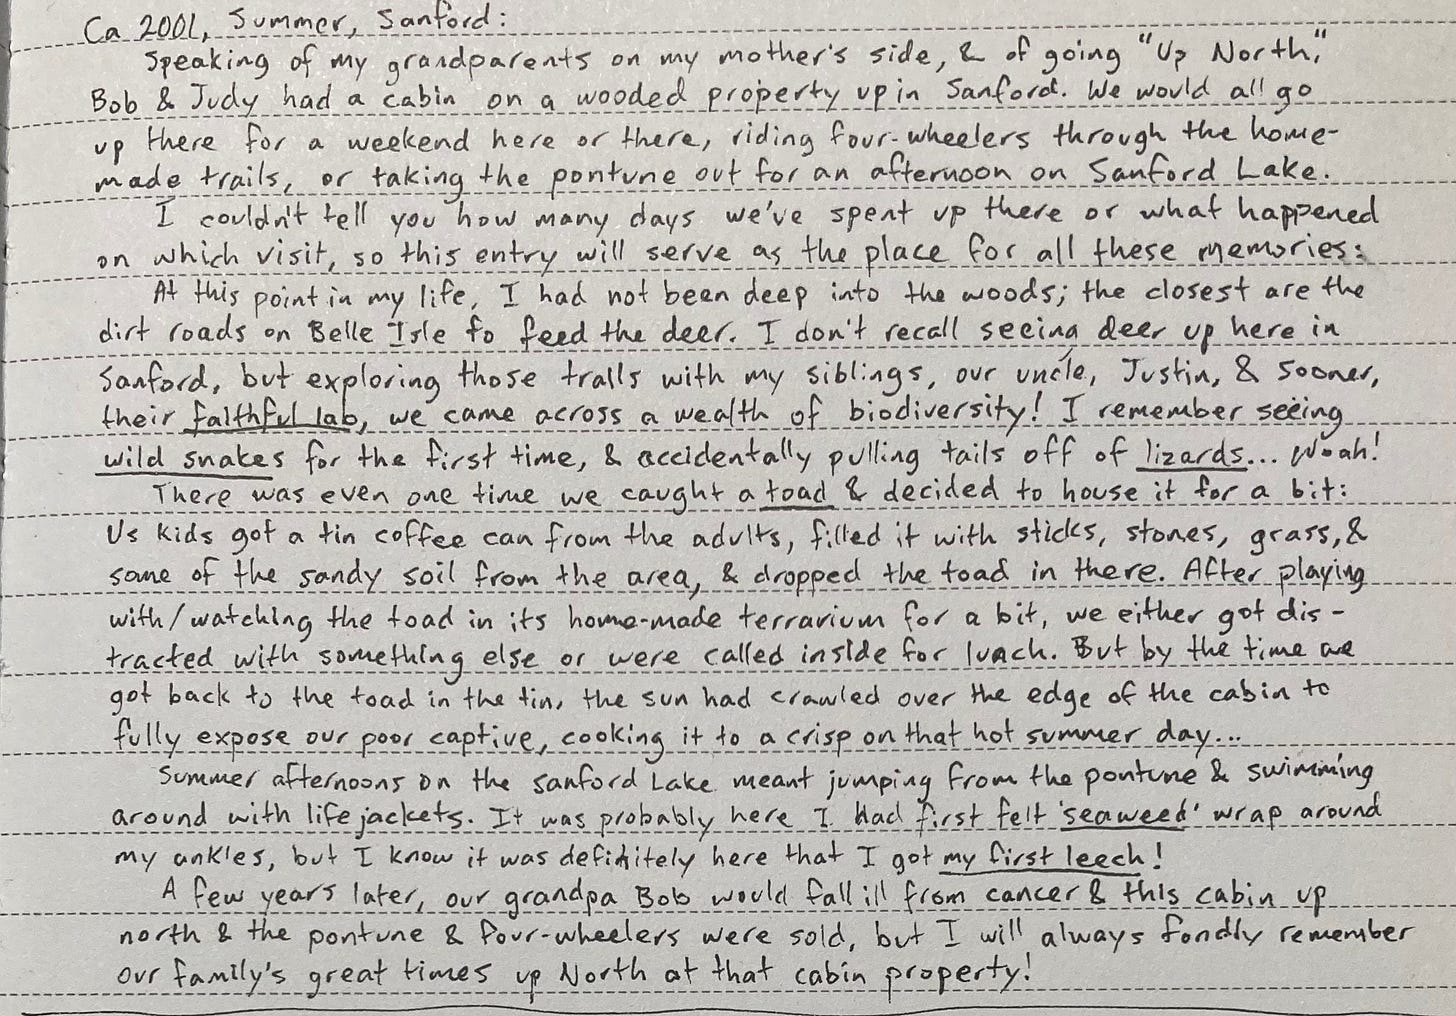 Ca 2001, Summer, Sanford:
Speaking of my grandparents on my mother's side, & of going "Up North,"
Bob & Judy had a cabin on a wooded property up in Sanford. We would all go
up there for a weekend here or there, riding four-wheelers through the home-
made trails, or taking the pontune out for an afternoon on Sanford Lake.
I couldn't tell you how many days we've spent up there or what happened
on which visit, so this entry will serve as the place for all these memories:
At this point in my life, I had not been deep into the woods; the closest are the
dirt roads on Belle Isle to feed the deer. I don't recall seeing deer up here in
Sanford, but exploring those trails with my siblings, our uncle, Justin, & Sooner,
their faithful lab, we came across a wealth of biodiversity! I remember seeing
wild snakes for the first time, & accidentally pulling tails off of lizards... Woah!
There was even one time we caught a toad & decided to house it for a bit:
Us kids got a tin coffee can from the adults, filled it with sticks, stones, grass, &
some of the sandy soil from the area, & dropped the toad in there. After playing
with/watching the toad in its home-made terrarium for a bit, we either got dis-
tracted with something else or were called inside for lunch. But by the time we
got back to the toad in the tin, the sun had crawled over the edge of the cabin to
fully expose our poor captive, cooking it to a crisp on that hot summer day...
Summer afternoons on the Sanford Lake meant jumping from the pontune & swimming
around with life jackets. It was probably here I had first felt 'seaweed' wrap around
my ankles, but I know it was definitely here that I got my first leech!
A few years later, our grandpa Bob would fall ill from cancer & this cabin up
north & the pontune & four-wheelers were sold, but I will always fondly remember
our family's great times up North at that cabin property!